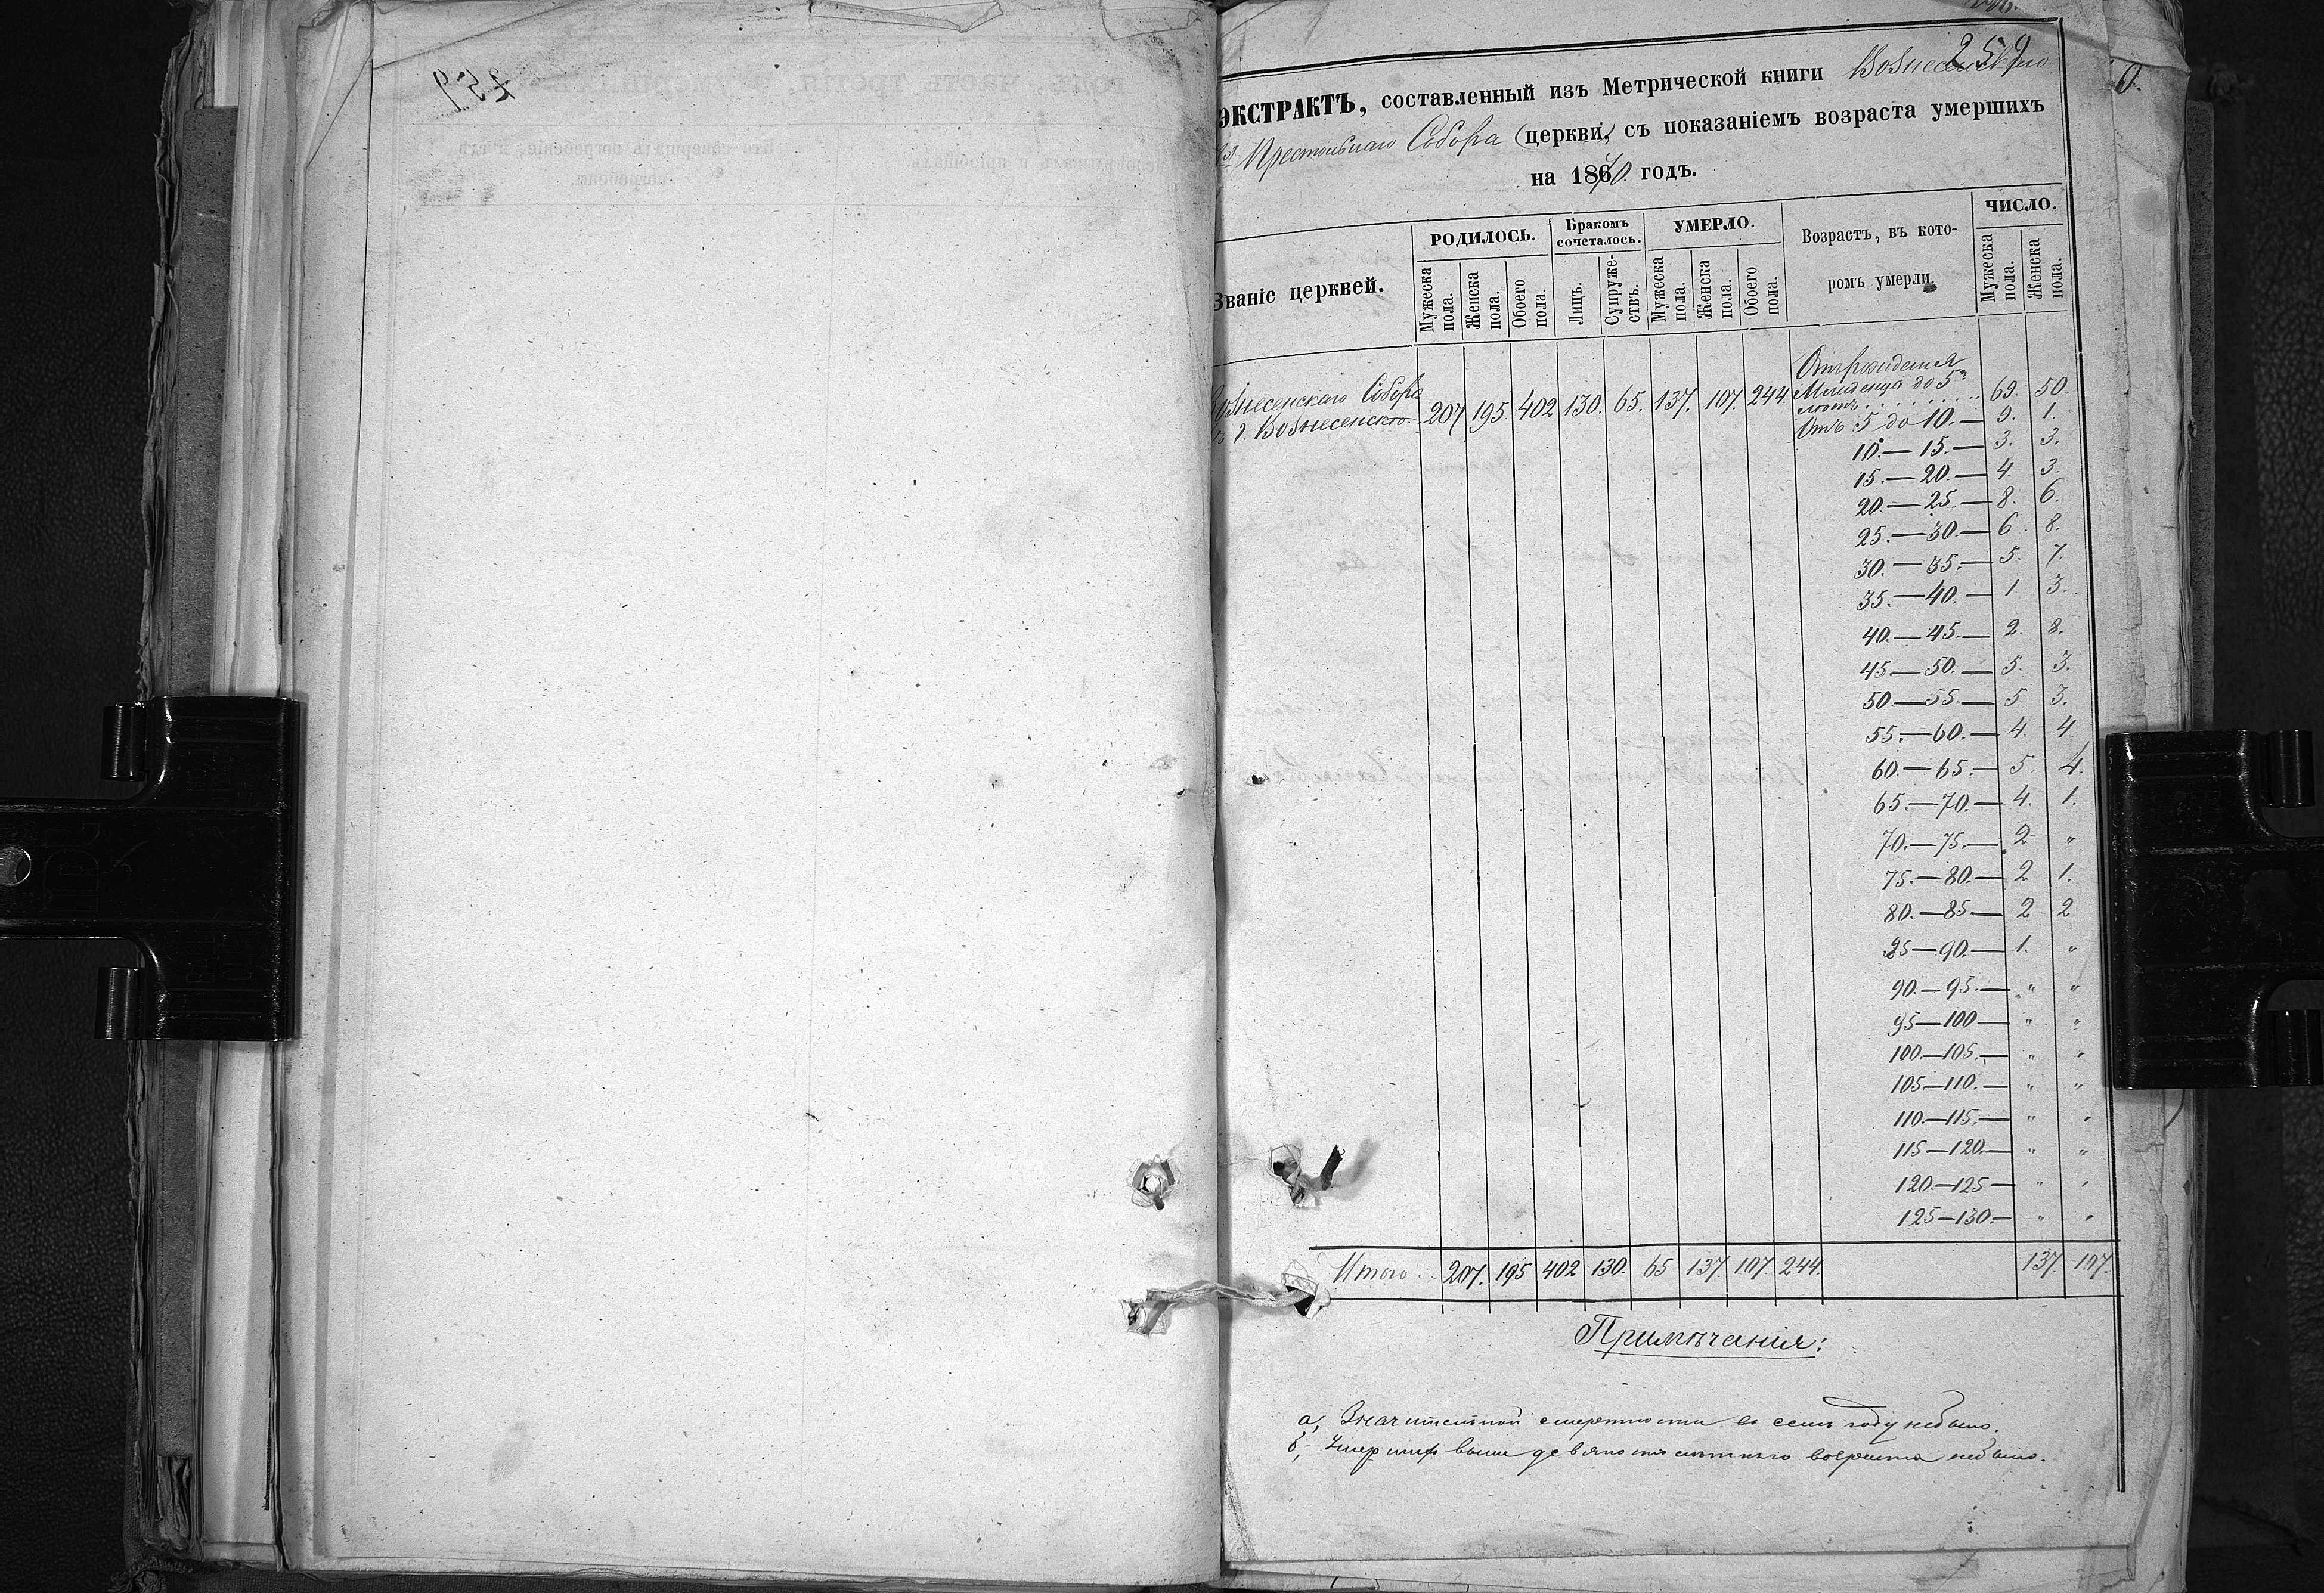 259
ЭКСТРАКТЪ, составленный изъ Метрической книги Вознесенскаго
Престольнаго Собора (церкви,) съ показаніемъ возраста умершихъ
на 1870 годъ.
Званіе церквей.
РОДИЛОСЬ.
Бракомъ сочеталось.
УМЕРЛО.
Возрастъ, въ кото-
ромъ умерли.
ЧИСЛО.
Мужеска пола.
Женска пола.
Обоего пола.
Лицъ.
Супруже-ствъ.
Мужеска пола.
Женска пола.
Обоего пола.
Мужеска пола.
Женска пола.
Отъ рожденія
Вознесенскаго Собора
г. Вознесенска. 207 195. 402 130. 65. 137. 107. 244. Младенца до 5
лѣтъ 69. 50.
Отъ 5 до 10.— 9. 1.
10.—15.— 3. 3.
15.—20.— 4. 3.
20.—25.— 8. 6.
25.—30.— 6. 8.
30.—35.— 5. 7.
35.—40.— 1. 3.
40.—45.— 2. 8.
45—50.— 5. 3.
50.—55.— 5 3.
55.—60.— 4. 4
60.—65.— 5. 4.
65.—70.— 4. 1.
70.—75.— 2 "
75.—80.— 2 1.
80.—85— 2 2
85—90.— 1. "
90.—95.— " "
95—100— " "
100.—105.— " "
105—110.— " "
110.—115.— " "
115—120.— " "
120.—125— " "
125—130.— " "
Итого 207. 195 402 130. 65 137. 107. 244. 137. 107.
Примѣчанія:
а, Значительной смертности въ семъ году небыло.
б, Умершихъ выше девяностолѣтняго возраста небыло.